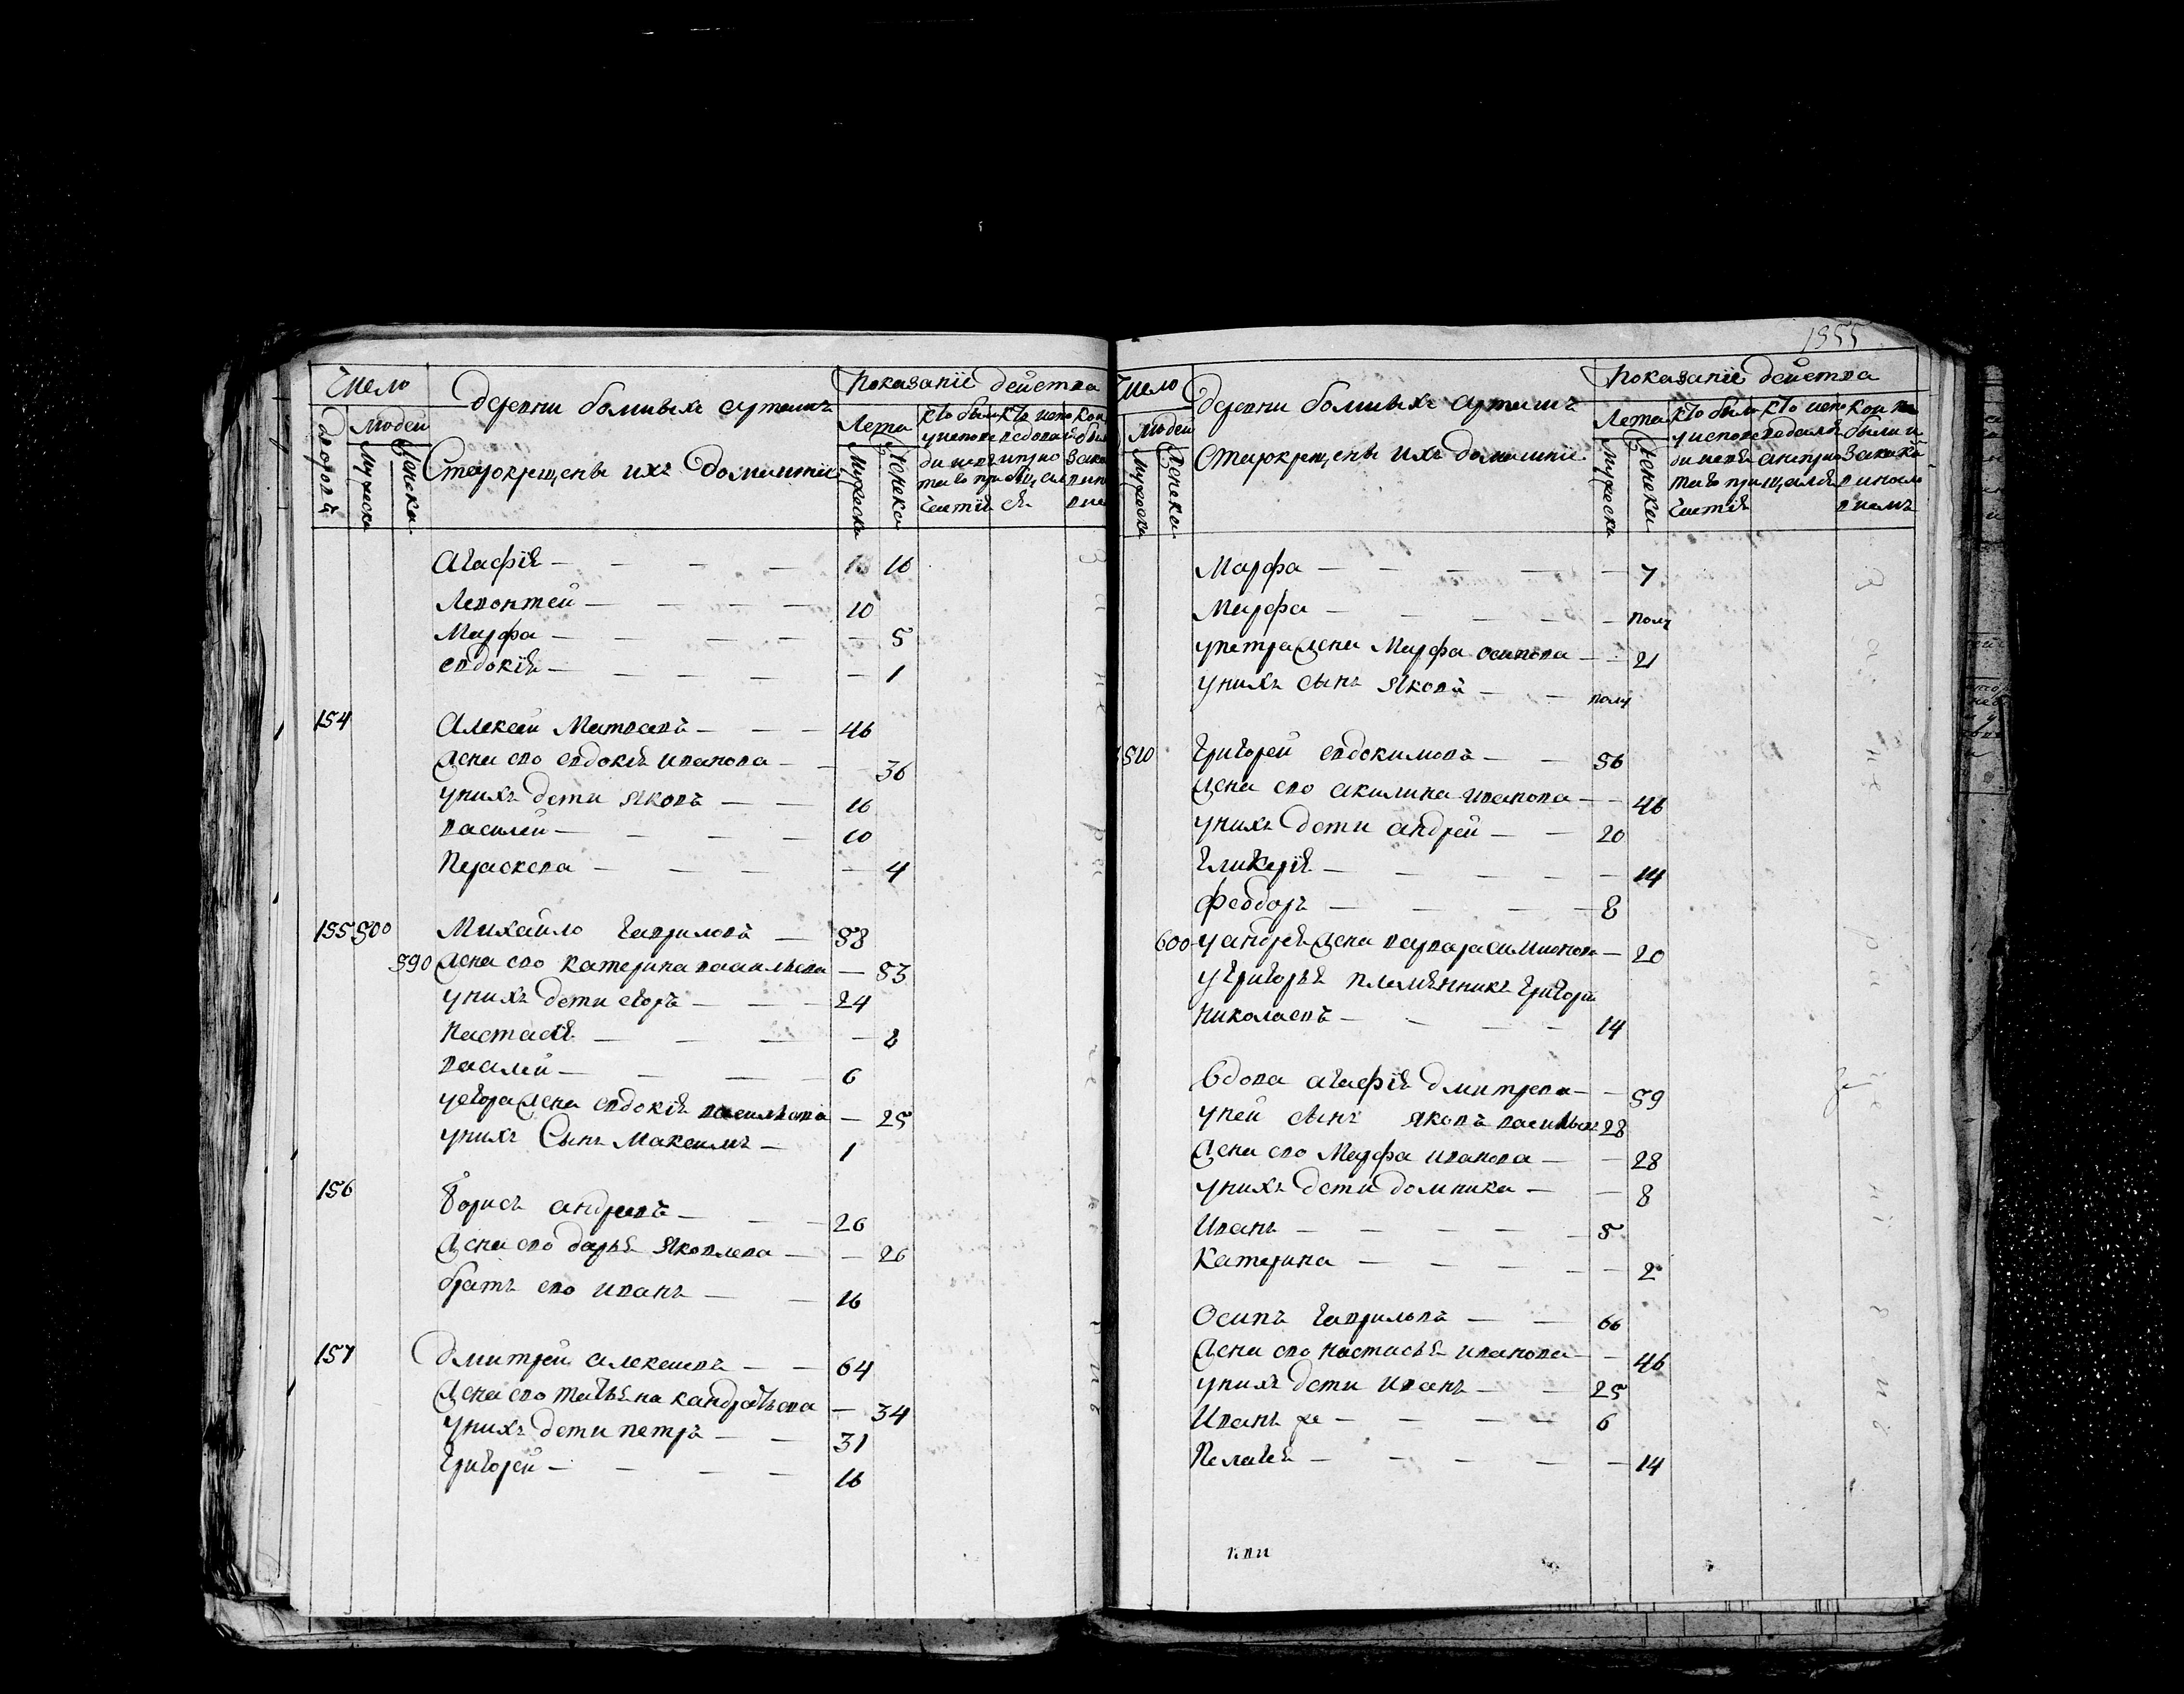 Число
Деревни болшыхъ арташъ
Показанїе действа
Дворовъ
Людей
Мужеска
Женска
Старокрещены ихъ домашние
Лета
Мужеска
Женска
Агафїя — — — — 16
Левонтей — — — — 10
Марфа — — — — — 5
Евдокїя — — — — — 1
154 Алексей Матвеевъ — — — 46
Жена ево Евдокїя Иванова — — 36
у нихъ дети Яковъ — — 16
Василей — — — — 10
Пераскева — — — — 4
155 500 Михайло Гавриловъ — 58
590 Жена ево Катерина Васильева — 53
у нихъ дети Егоръ — — — 24
Настасья — — — — 8
Василей — — — 6
у Егора Жена Евдокїя Васильева — 25
у нихъ Сынъ Максимъ — 1
156 Борисъ Андреевъ — — — 26
Жена ево Дарья Яковлева — — 26
братъ ево Иванъ — — 16
157 Дмитрей Алексеевъ — — 64
Жена ево Татьяна Кандратьева — 34
у нихъ дети Петръ — — 31
Григорей — — — — 16
1355
Число
Деревни болшыхъ арташъ
Показанїе действа
Людей
Мужеска
Женска
Старокрещены ихъ домашние
Лета
Мужеска
Женска
Марфа — — — — — 7
Марфа — — — — — полу
у Петра Жена Марфа Осипова — — 21
у нихъ сынъ Яковъ — — полу
510 Григорей Евдокимовъ — — 56
Жена ево Акилина Иванова — — 46
у нихъ дети Андрей — — 20
Гликерїя — — — — — 14
Феодоръ — — — — 8
600 у Андрея Жена Варвара Симионова — 20
у Григорья племянникъ Григорей
Николаевъ — — — — 14
Вдова Агафїя Дмитрева — — 59
у ней сынъ Яковъ Васильевъ 28
Жена ево Марфа Иванова — — 28
у нихъ дети Домника — — 8
Иванъ — — — — — 5
Катерина — — — — — 2
Осипъ Гавриловъ — — 66
Жена ево Настасья Иванова — — 46
у нихъ дети Иванъ — — 25
Иванъ же — — — — 6
Пелагея — — — — — 14